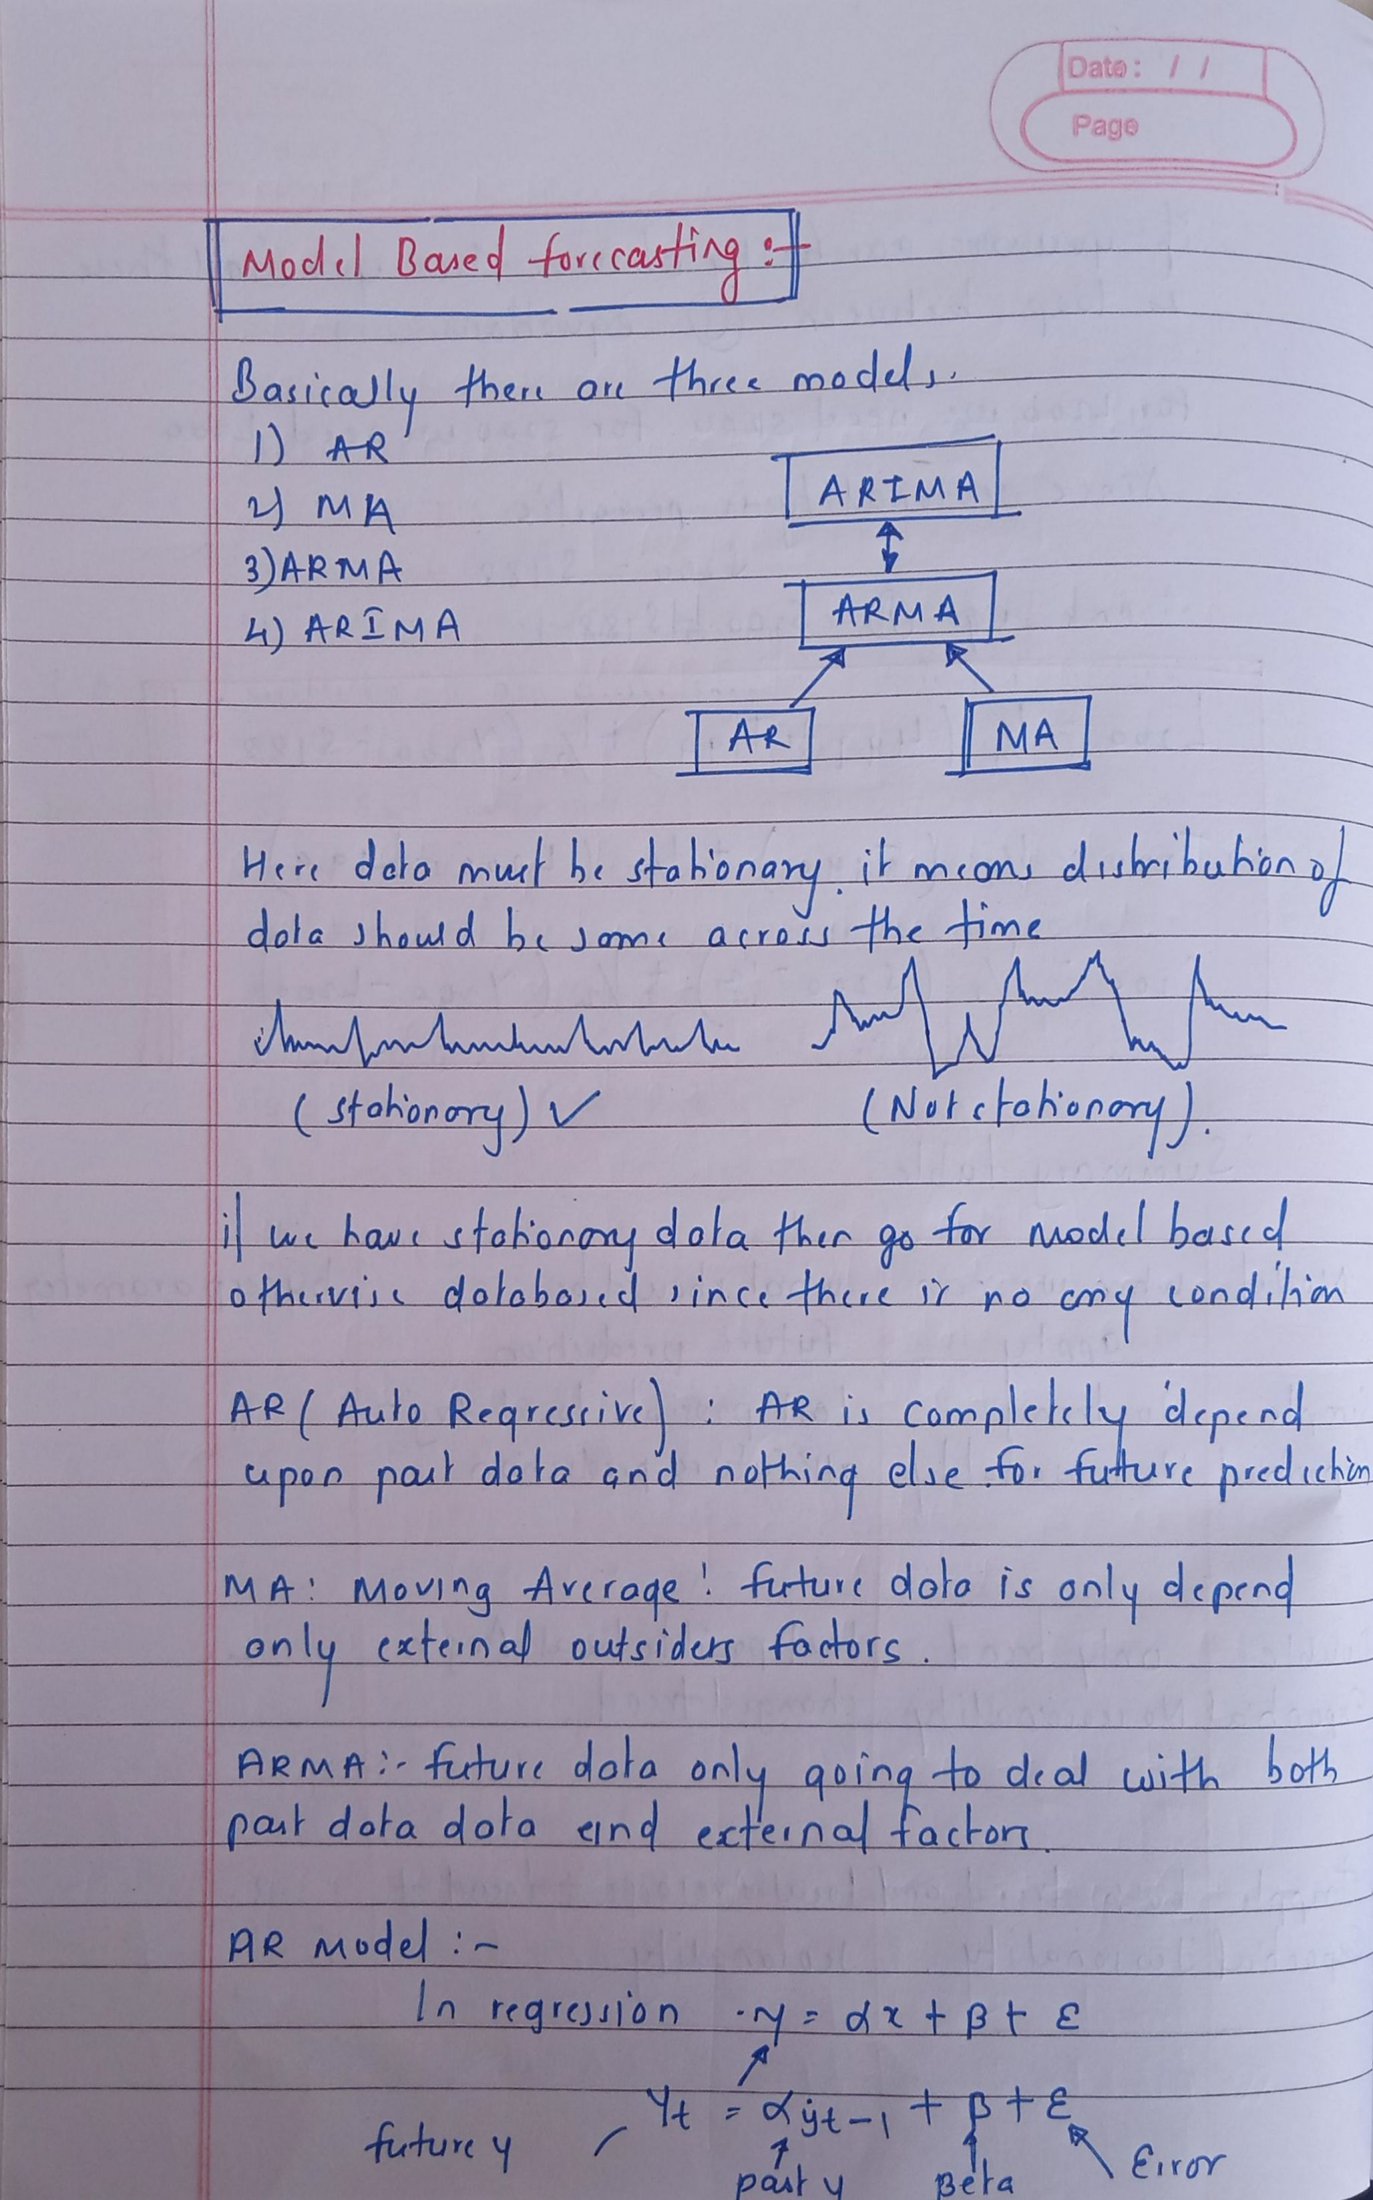 Date: / /
Page
Model Based forecasting :-
Basically there are three models.
1) AR
2) MA
3) ARMA
4) ARIMA
ARIMA
ARMA
AR
MA
Here data must be stationary. it means distribution of
data should be same across the time
(stationary) ✓
(Not stationary).
if we have stationary data then go for model based
otherwise databased since there is no any condition
AR (Auto Regressive) : AR is completely depend
upon past data and nothing else for future prediction
MA : Moving Average : future data is only depend
only external outsiders factors.
ARMA :- future data only going to deal with both
past data data and external factors.
AR model :-
In regression y = αx + β + ε
Yt = αyt-1 + β + ε
future y
past y
Beta
Error